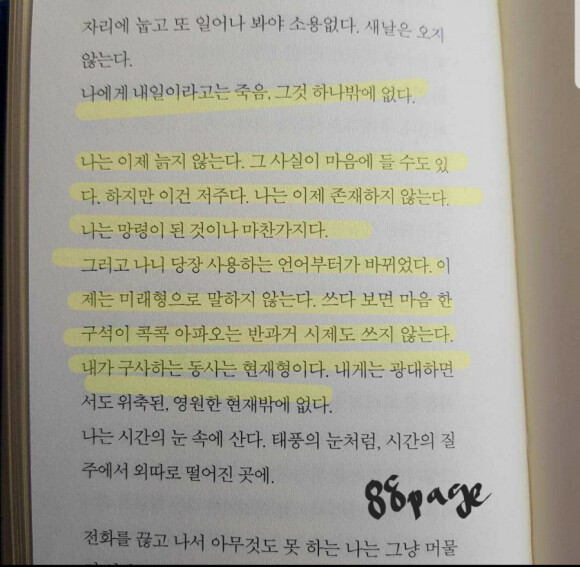 자리에 눕고 또 일어나 봐야 소용없다. 새날은 오지
않는다.
나에게 내일이라고는 죽음, 그것 하나밖에 없다.
나는 이제 늙지 않는다. 그 사실이 마음에 들 수도 있
다. 하지만 이건 저주다. 나는 이제 존재하지 않는다.
나는 망령이 된 것이나 마찬가지다.
그러고 나니 당장 사용하는 언어부터가 바뀌었다. 이
제는 미래형으로 말하지 않는다. 쓰다 보면 마음 한
구석이 콕콕 아파오는 반과거 시제도 쓰지 않는다.
내가 구사하는 동사는 현재형이다. 내게는 광대하면
서도 위축된, 영원한 현재밖에 없다.
나는 시간의 눈 속에 산다. 태풍의 눈처럼, 시간의 질
주에서 외따로 떨어진 곳에.
88page
전화를 끊고 나서 아무것도 못 하는 나는 그냥 머물